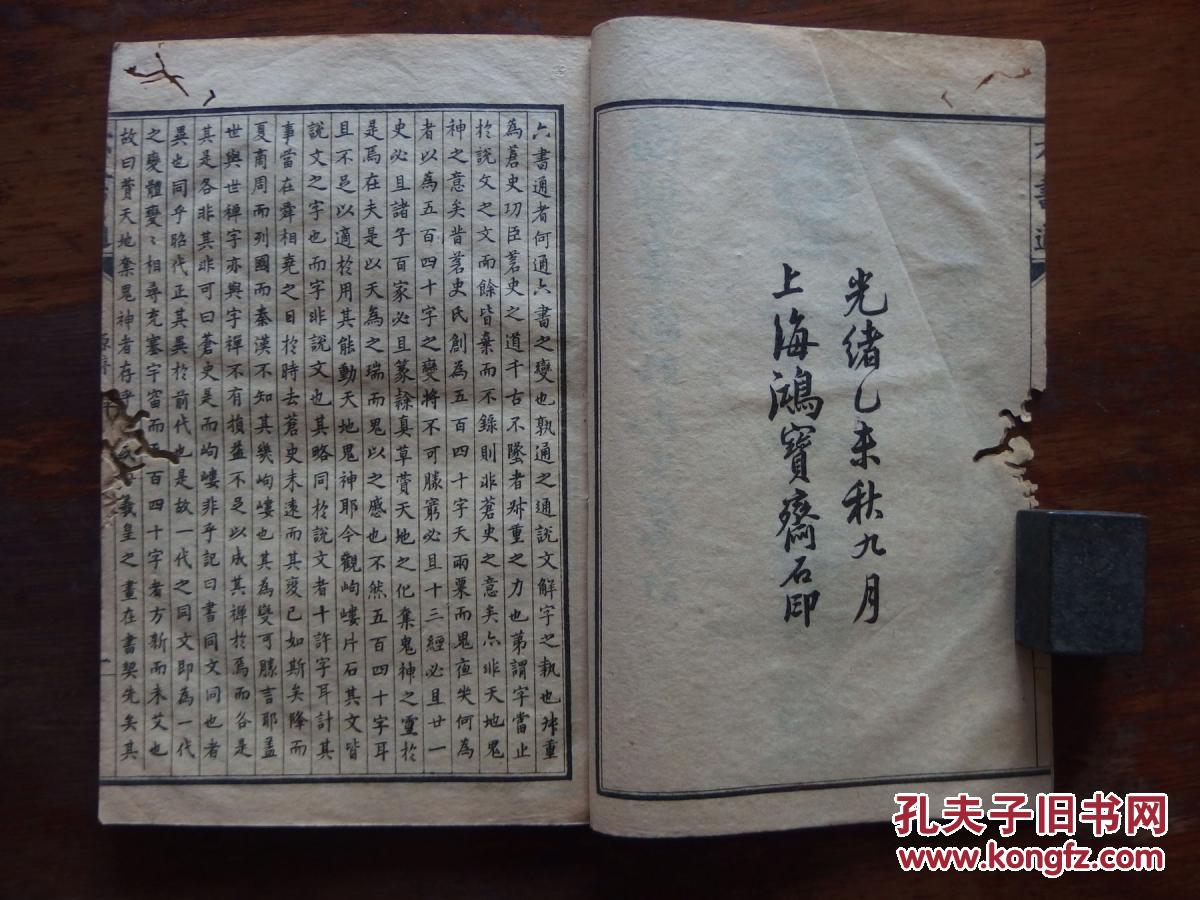 光緒乙未秋九月
上海鴻寶齋石印
六書通
六書通者何通六書之變也孰通之通說文解字之執也叔重
為蒼史功臣蒼史之道千古不墜者叔重之力也第謂字當止
於說文之文而餘皆棄而不錄則非蒼史之意矣亦非天地鬼
神之意矣昔蒼史氏創為五百四十字天雨粟而鬼夜哭何為
者以為五百四十字之變將不可勝窮必且十三經必且廿一
史必且諸子百家必且篆隸真草費天地之化棄鬼神之靈於
是焉在夫是以天為之瑞而鬼以之感也不然五百四十字耳
且不足以適於用其能動天地鬼神耶今觀岣嶁片石其文皆
說文之字也而字非說文也其略同於說文者十許字耳計其
事當在舜相堯之日於時去蒼史未遠而其變已如斯矣降而
夏商周而列國而秦漢不知其幾岣嶁也其為變可勝言耶盖
世與世禅字亦與字禅不有損益不足以成其禅於焉而各是
其是各非其非可曰蒼史是而岣嶁非乎記曰書同文同也者
異也同乎昭代正其異於前代也是故一代之同文即為一代
之變體變〻相尋充塞宇宙而五百四十字者方新而未艾也
故曰費天地棄鬼神者存乎羲皇之畫在書契先矣其
原序
一
孔夫子旧书网
www.kongfz.com